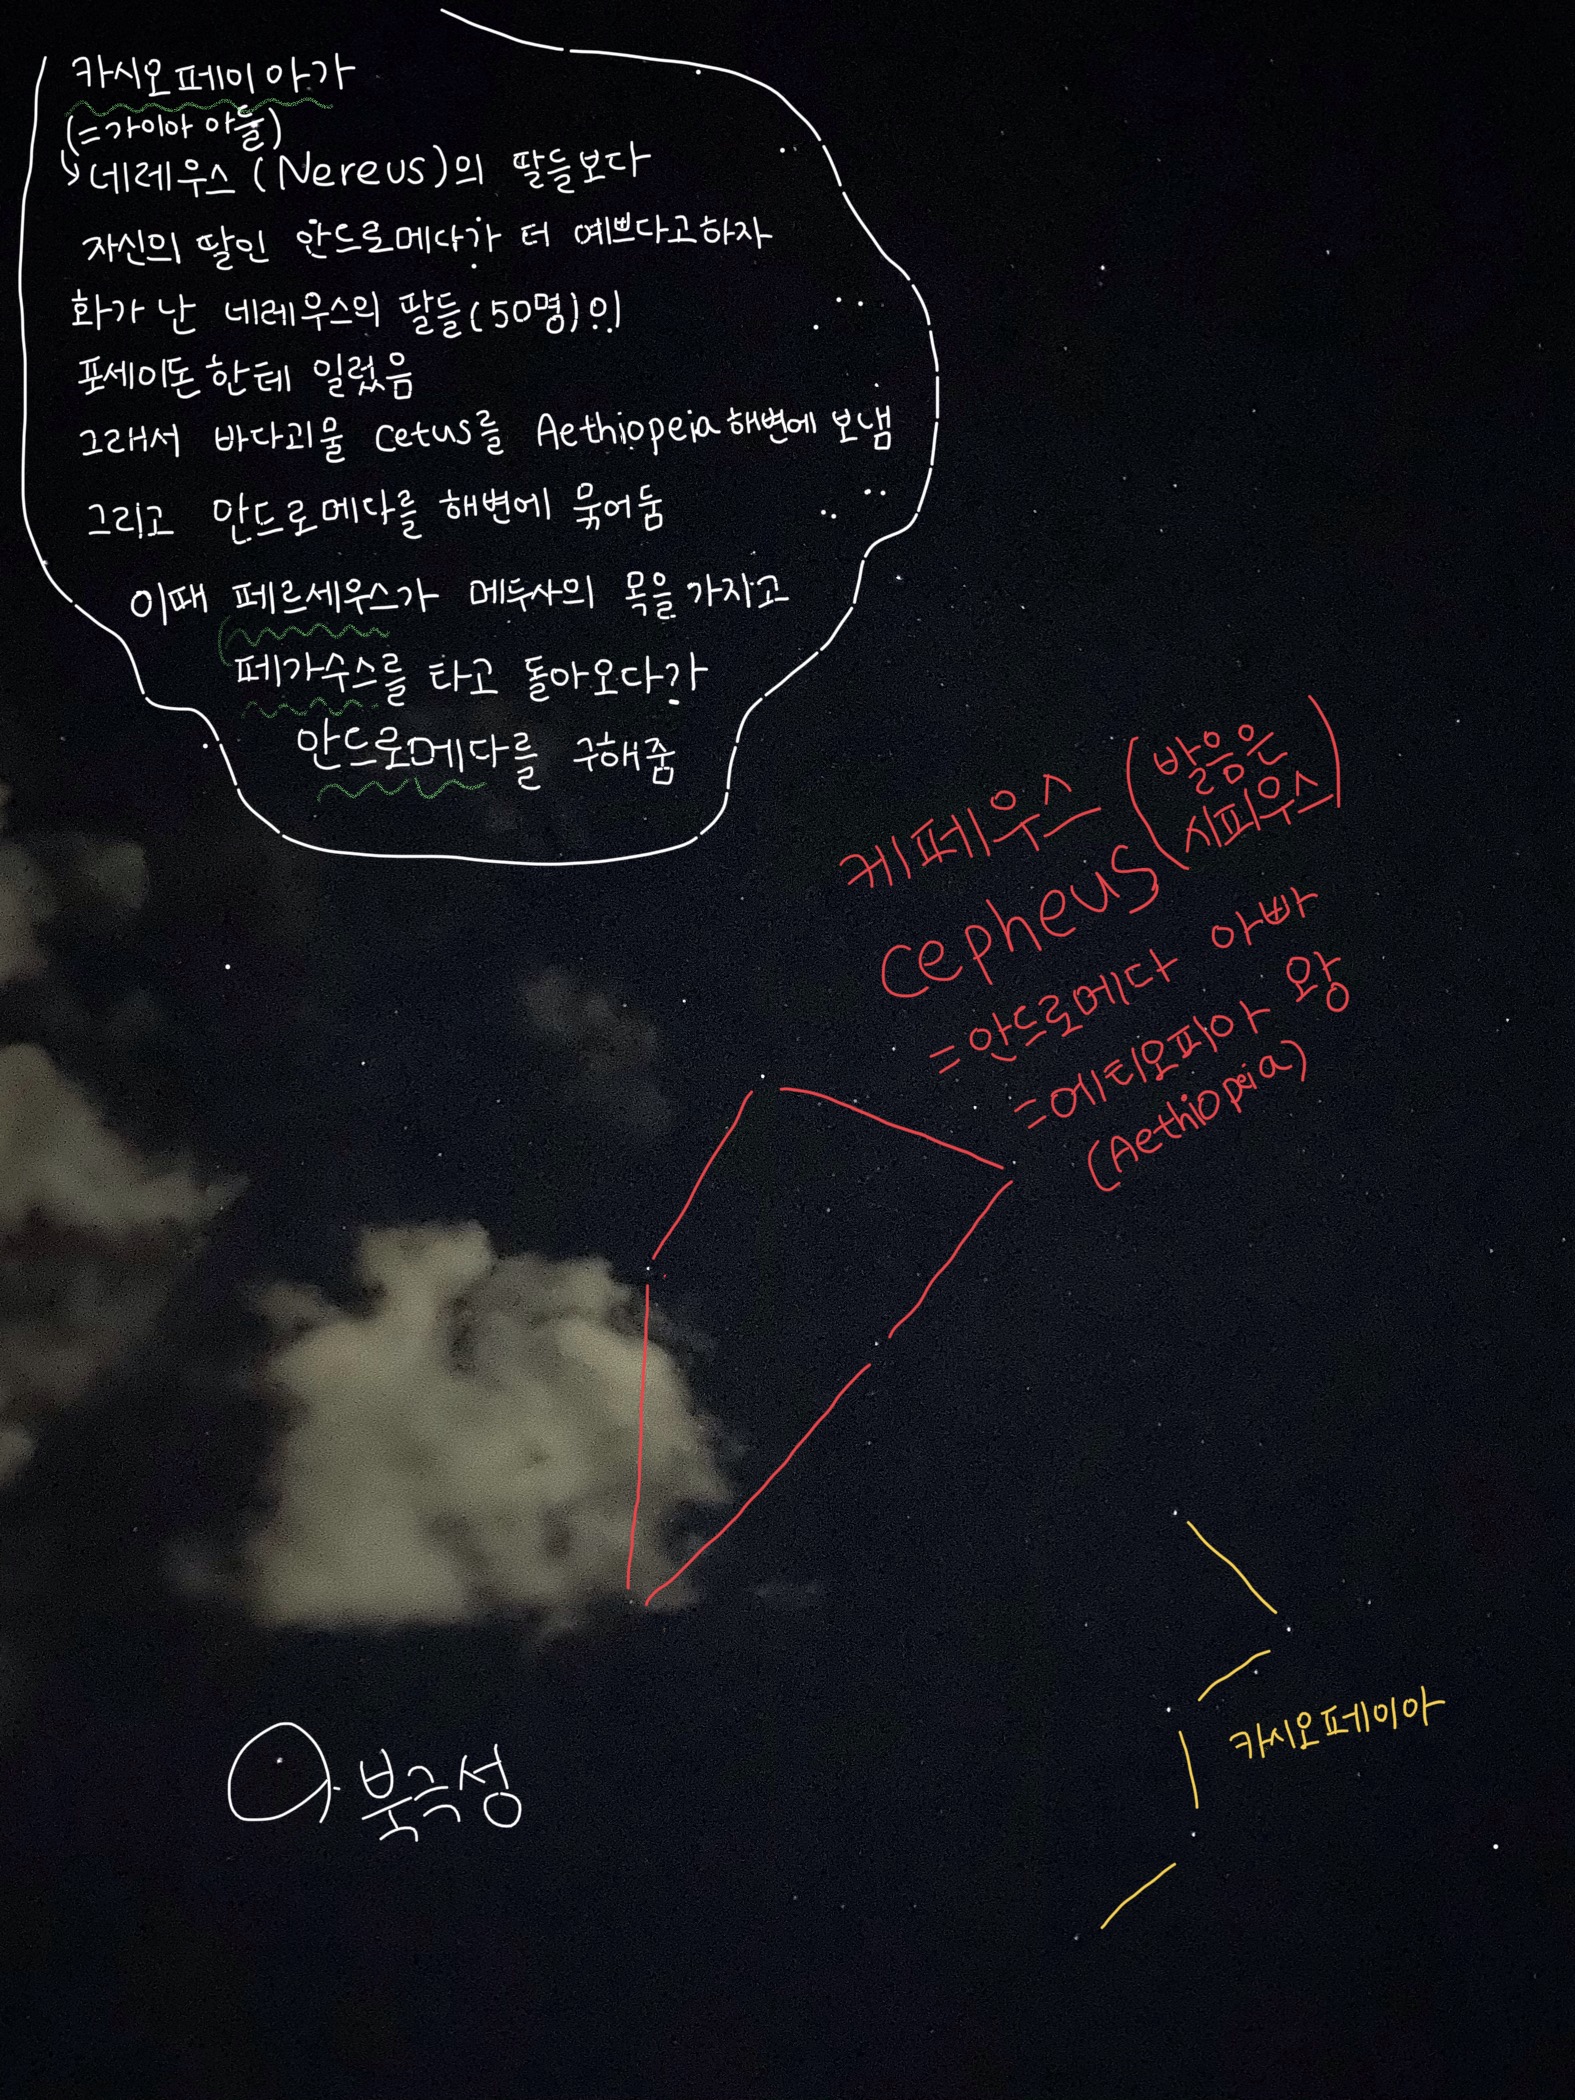 카시오페이아가
(=가이아 아들)
↳네레우스(Nereus)의 딸들보다
자신의 딸인 안드로메다가 더 예쁘다고하자
화가 난 네레우스의 딸들(50명)이
포세이돈한테 일렀음
그래서 바다괴물 Cetus를 Aethiopeia해변에 보냄
그리고 안드로메다를 해변에 묶어둠
이때 페르세우스가 메두사의 목을 가지고
페가수스를 타고 돌아오다가
안드로메다를 구해줌
케페우스 (발음은
시피우스)
Cepheus
=안드로메다 아빠
=에티오피아 왕
(Aethiopeia)
카시오페이아
북극성